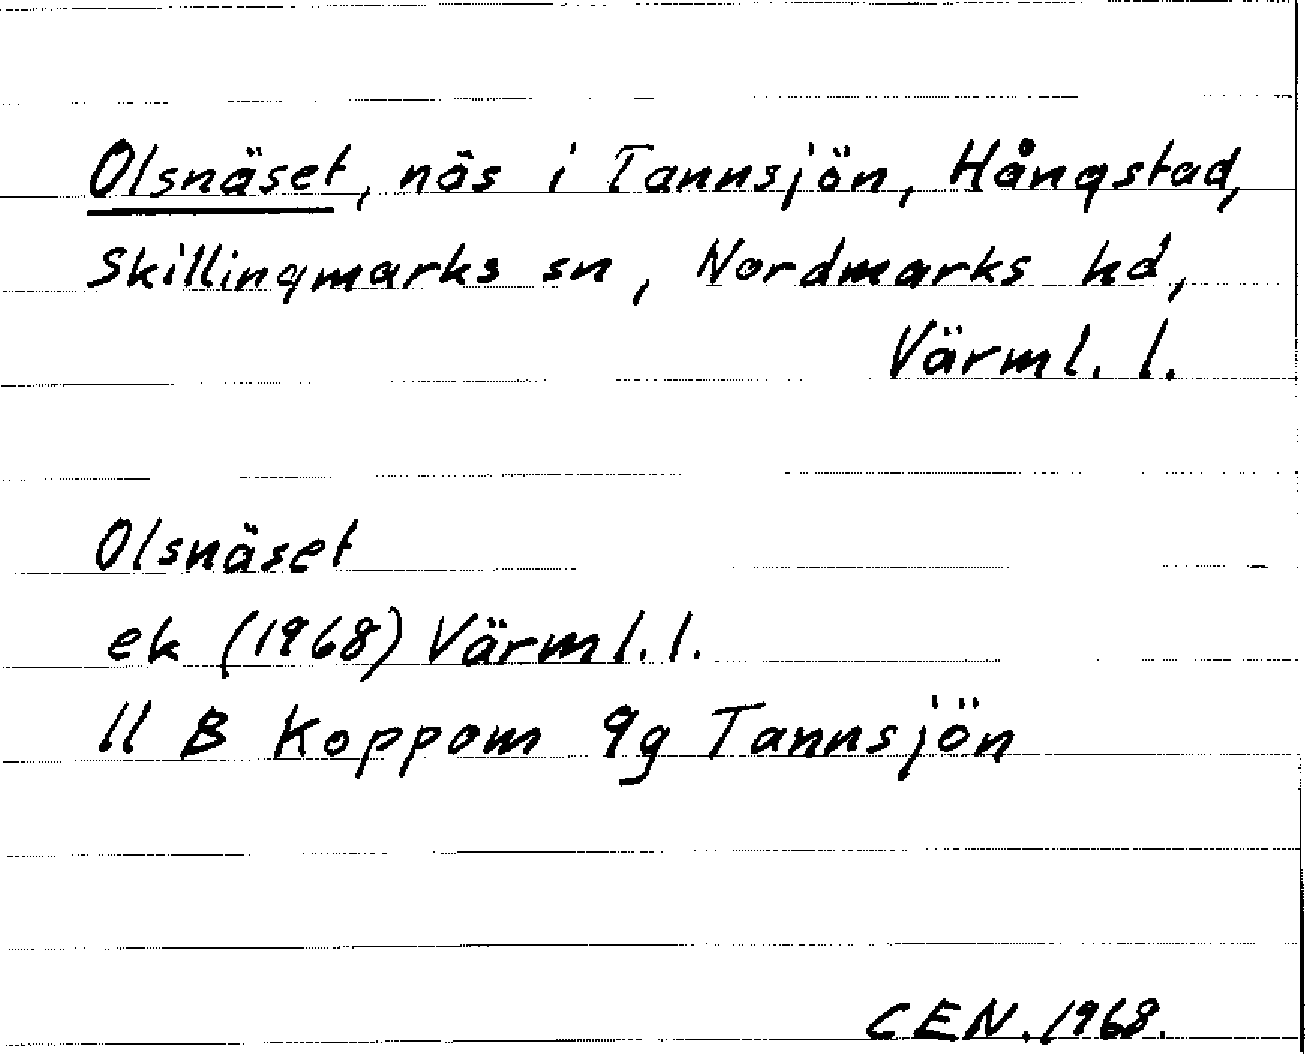 Olsnäset, näs i Tannsjön, Hångstad,
Skillingmarks sn, Nordmarks hd,
Värml. l.
Olsnäset
ek (1968) Värml. l.
11 B Koppom 9g Tannsjön
CEN. 1968.